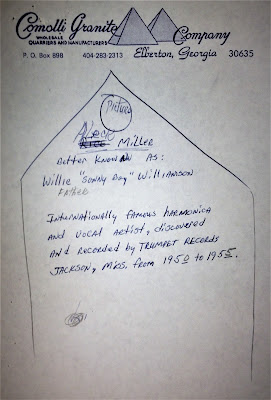 Comolli Granite Company
WHOLESALE
QUARRIERS AND MANUFACTURERS
P. O. Box 898 404-283-2313 Elberton, Georgia 30635
Picture
Aleck
RICE MILLER
Better KNOWN AS:
Willie "Sonny Boy" Williamson
INternationally famous harmonica
AND vocal Artist, discovered
AND recorded by TRUMPET RECORDS
JACKSON, Miss. from 1950 to 1955.